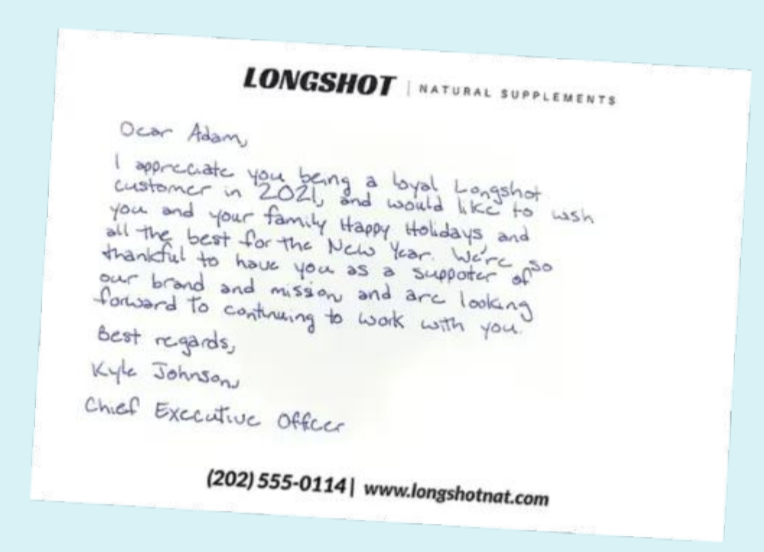 LONGSHOT | NATURAL SUPPLEMENTS
Dear Adam,
I appreciate you being a loyal Longshot
customer in 2021, and would like to wsh
you and your family Happy Holidays and
all the best for the New Year. We're so
thankful to have you as a suppoter of
our brand and mission and are looking
forward to continuing to work with you.
Best regards,
Kyle Johnson,
Chief Executive Officer
(202) 555-0114 | www.longshotnat.com